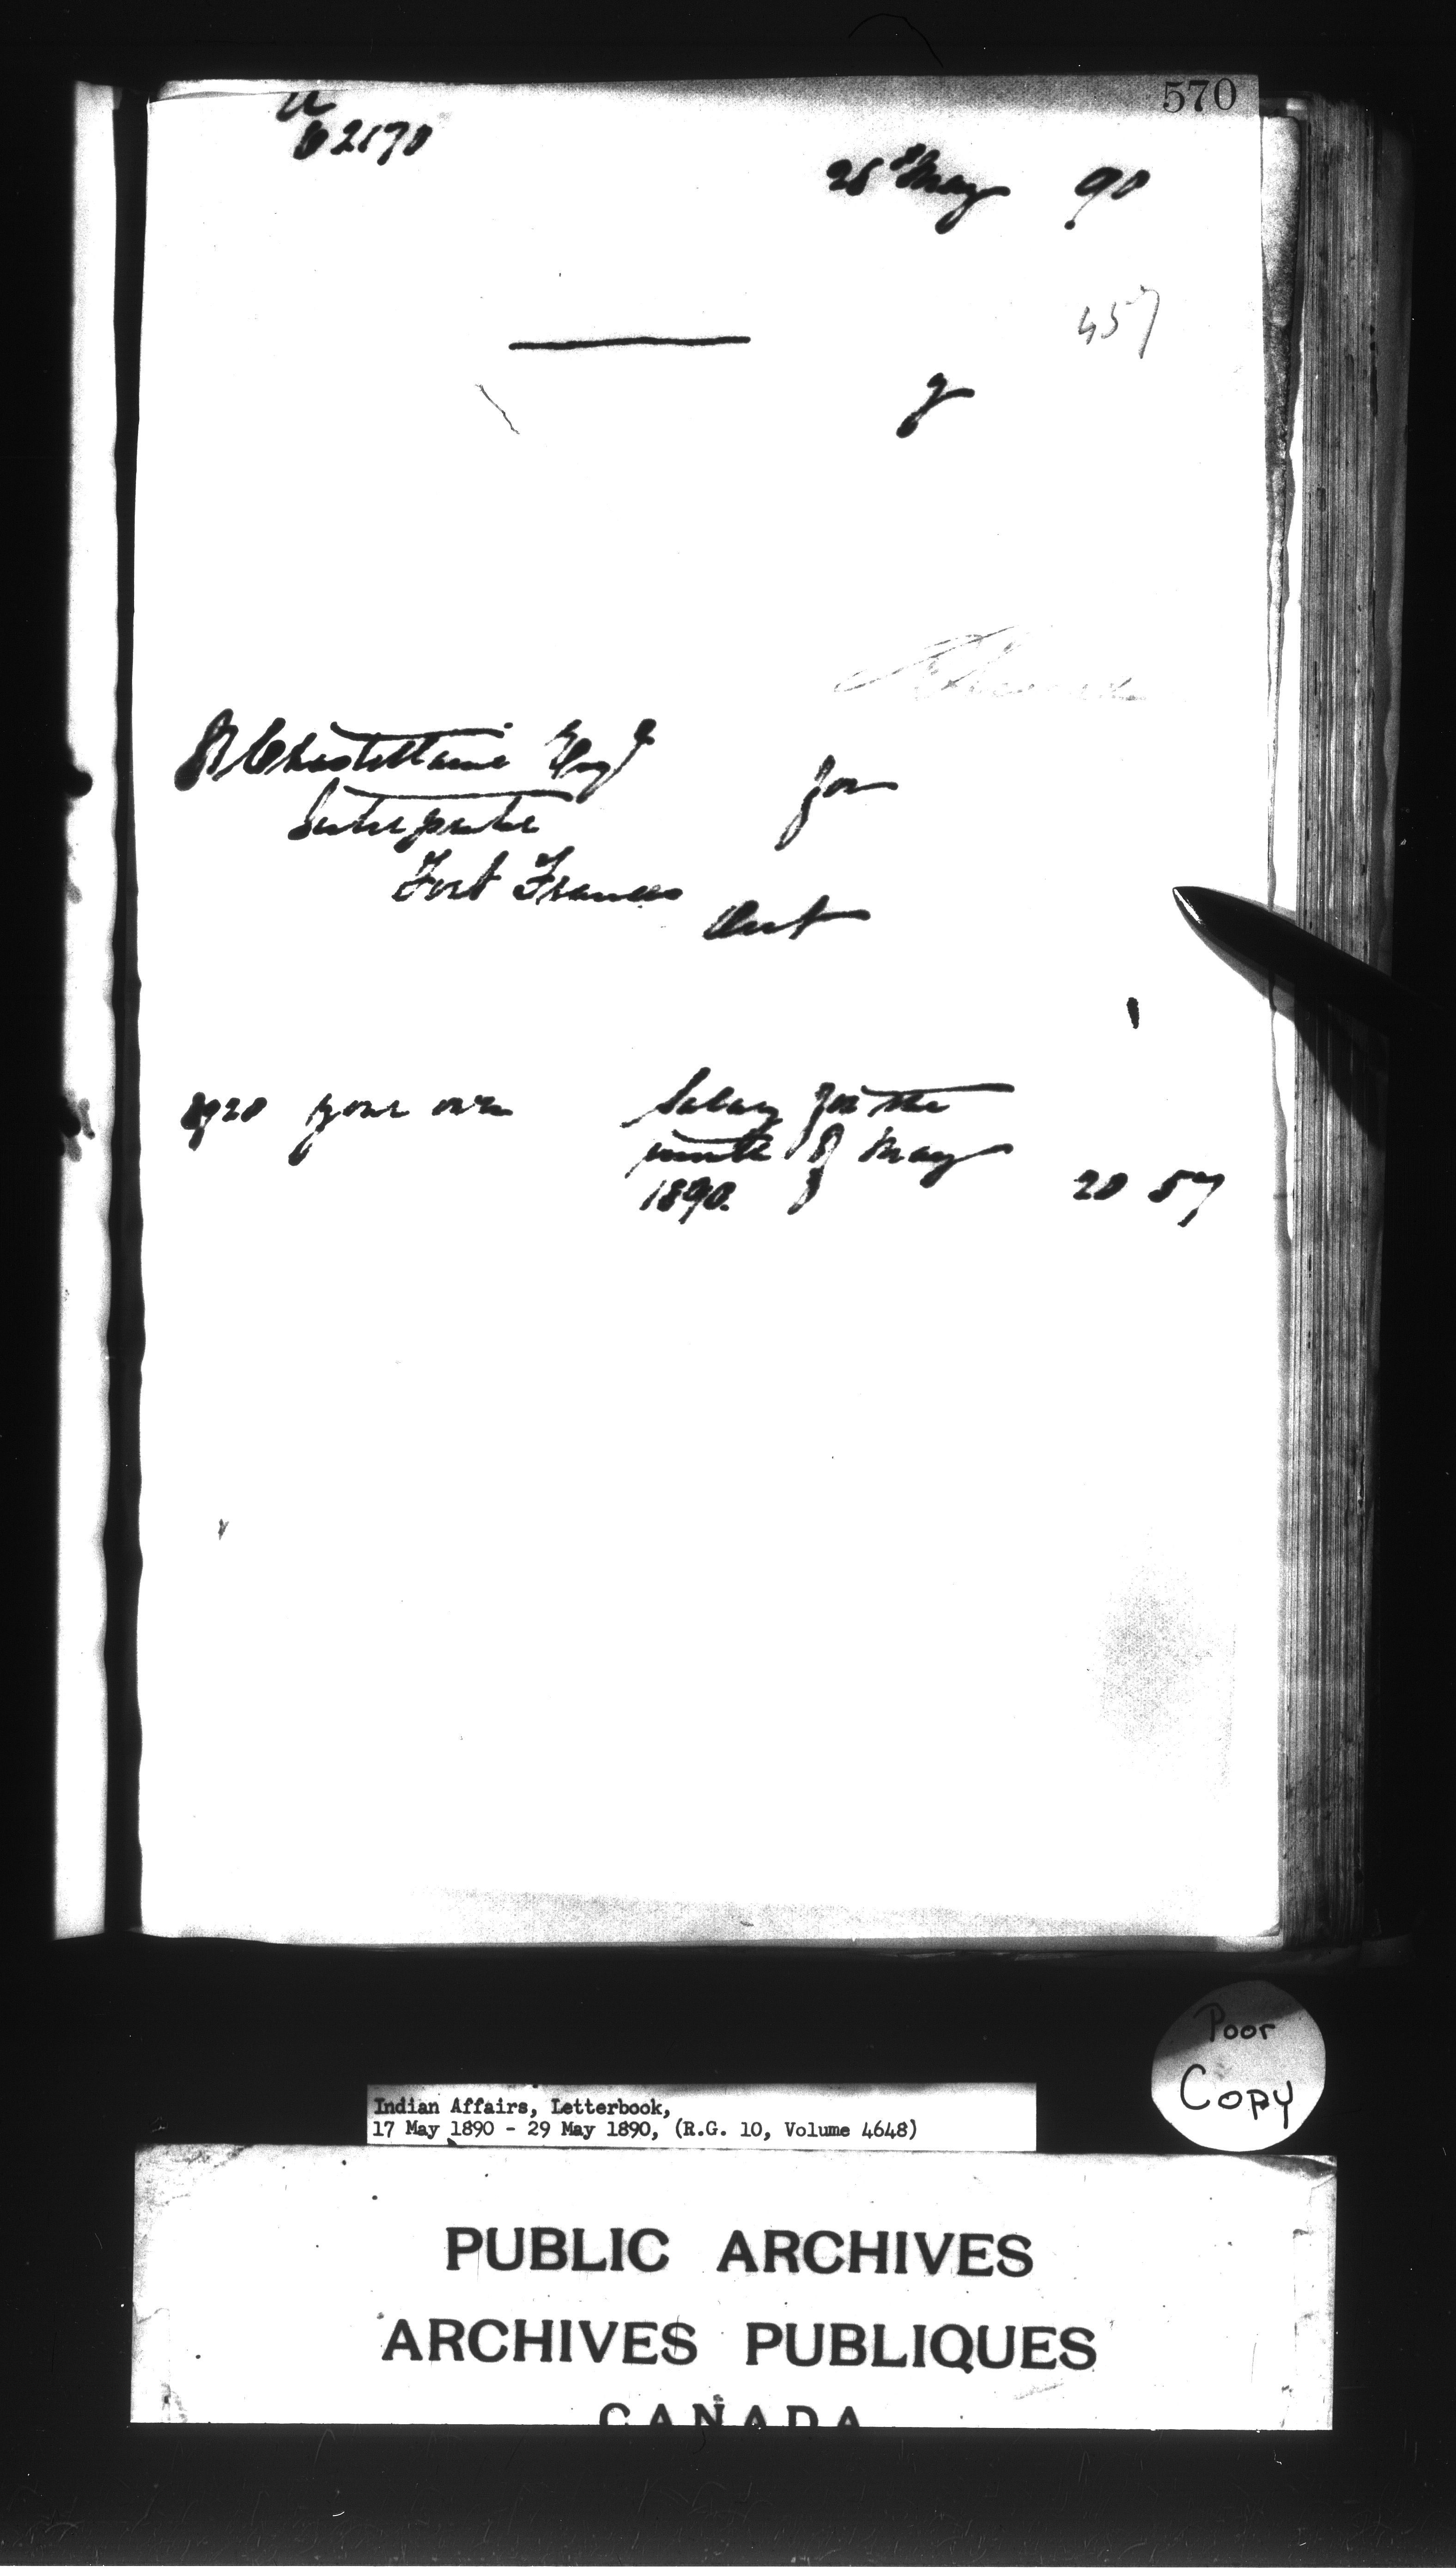 570
62170
28 May 90
457
y
N Chastellaine Esqr
Interpreter
for
Fort Frances
Ont
1920 your own
Salary for the
month of May
1890.
20 57
Poor
Copy
Indian Affairs, Letterbook,
17 May 1890 - 29 May 1890, (R.G. 10, Volume 4648)
PUBLIC ARCHIVES
ARCHIVES PUBLIQUES
CANADA